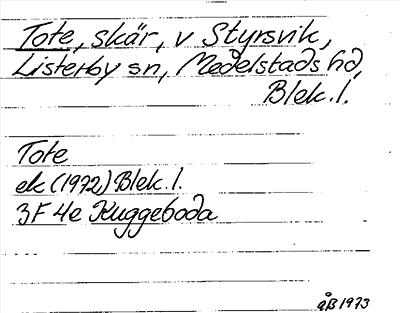 Tote, skär, v Styrsvik,
Listerby sn, Medelstads hd,
Blek. l.
Tote
ek (1972) Blek. l.
3F 4e Kuggeboda
åB 1973